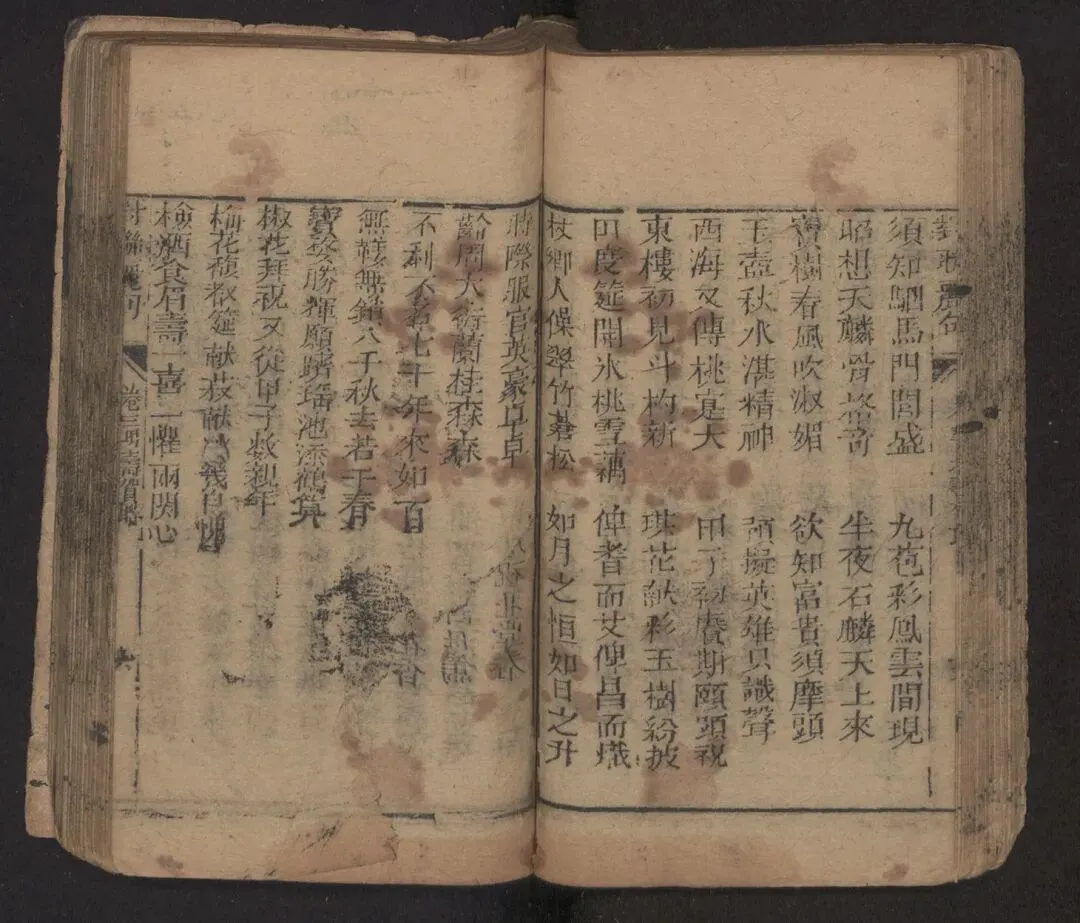 須知駟馬門閭盛 九苞彩鳳雲間現
昭想天麟骨格奇 半夜石麟天上來
寶樹春風吹淑媚 欲知富貴須摩頭
玉壺秋水湛精神 預擬英雄只識聲
西海又傳桃寔大 甲子初賡斯頤頭祝
東樓初見斗杓新 琪花献彩玉樹紛披
曰度筵開氷桃雪藕 俾耆而艾俾昌而熾
杖鄉人傑翠竹蒼松 如月之恒如日之升
時際服官英豪卓卓
齡周大衍蘭桂森森
不剩不多七十年來如百
無轅無錯八千秋去若干春
寶婺勝輝願躋瑤池添鶴筭
椒花拜祝又從甲子数親年
梅花馥郁筵献荻献
檢酒食眉壽一喜一懼兩関心
對聯麗句 卷三